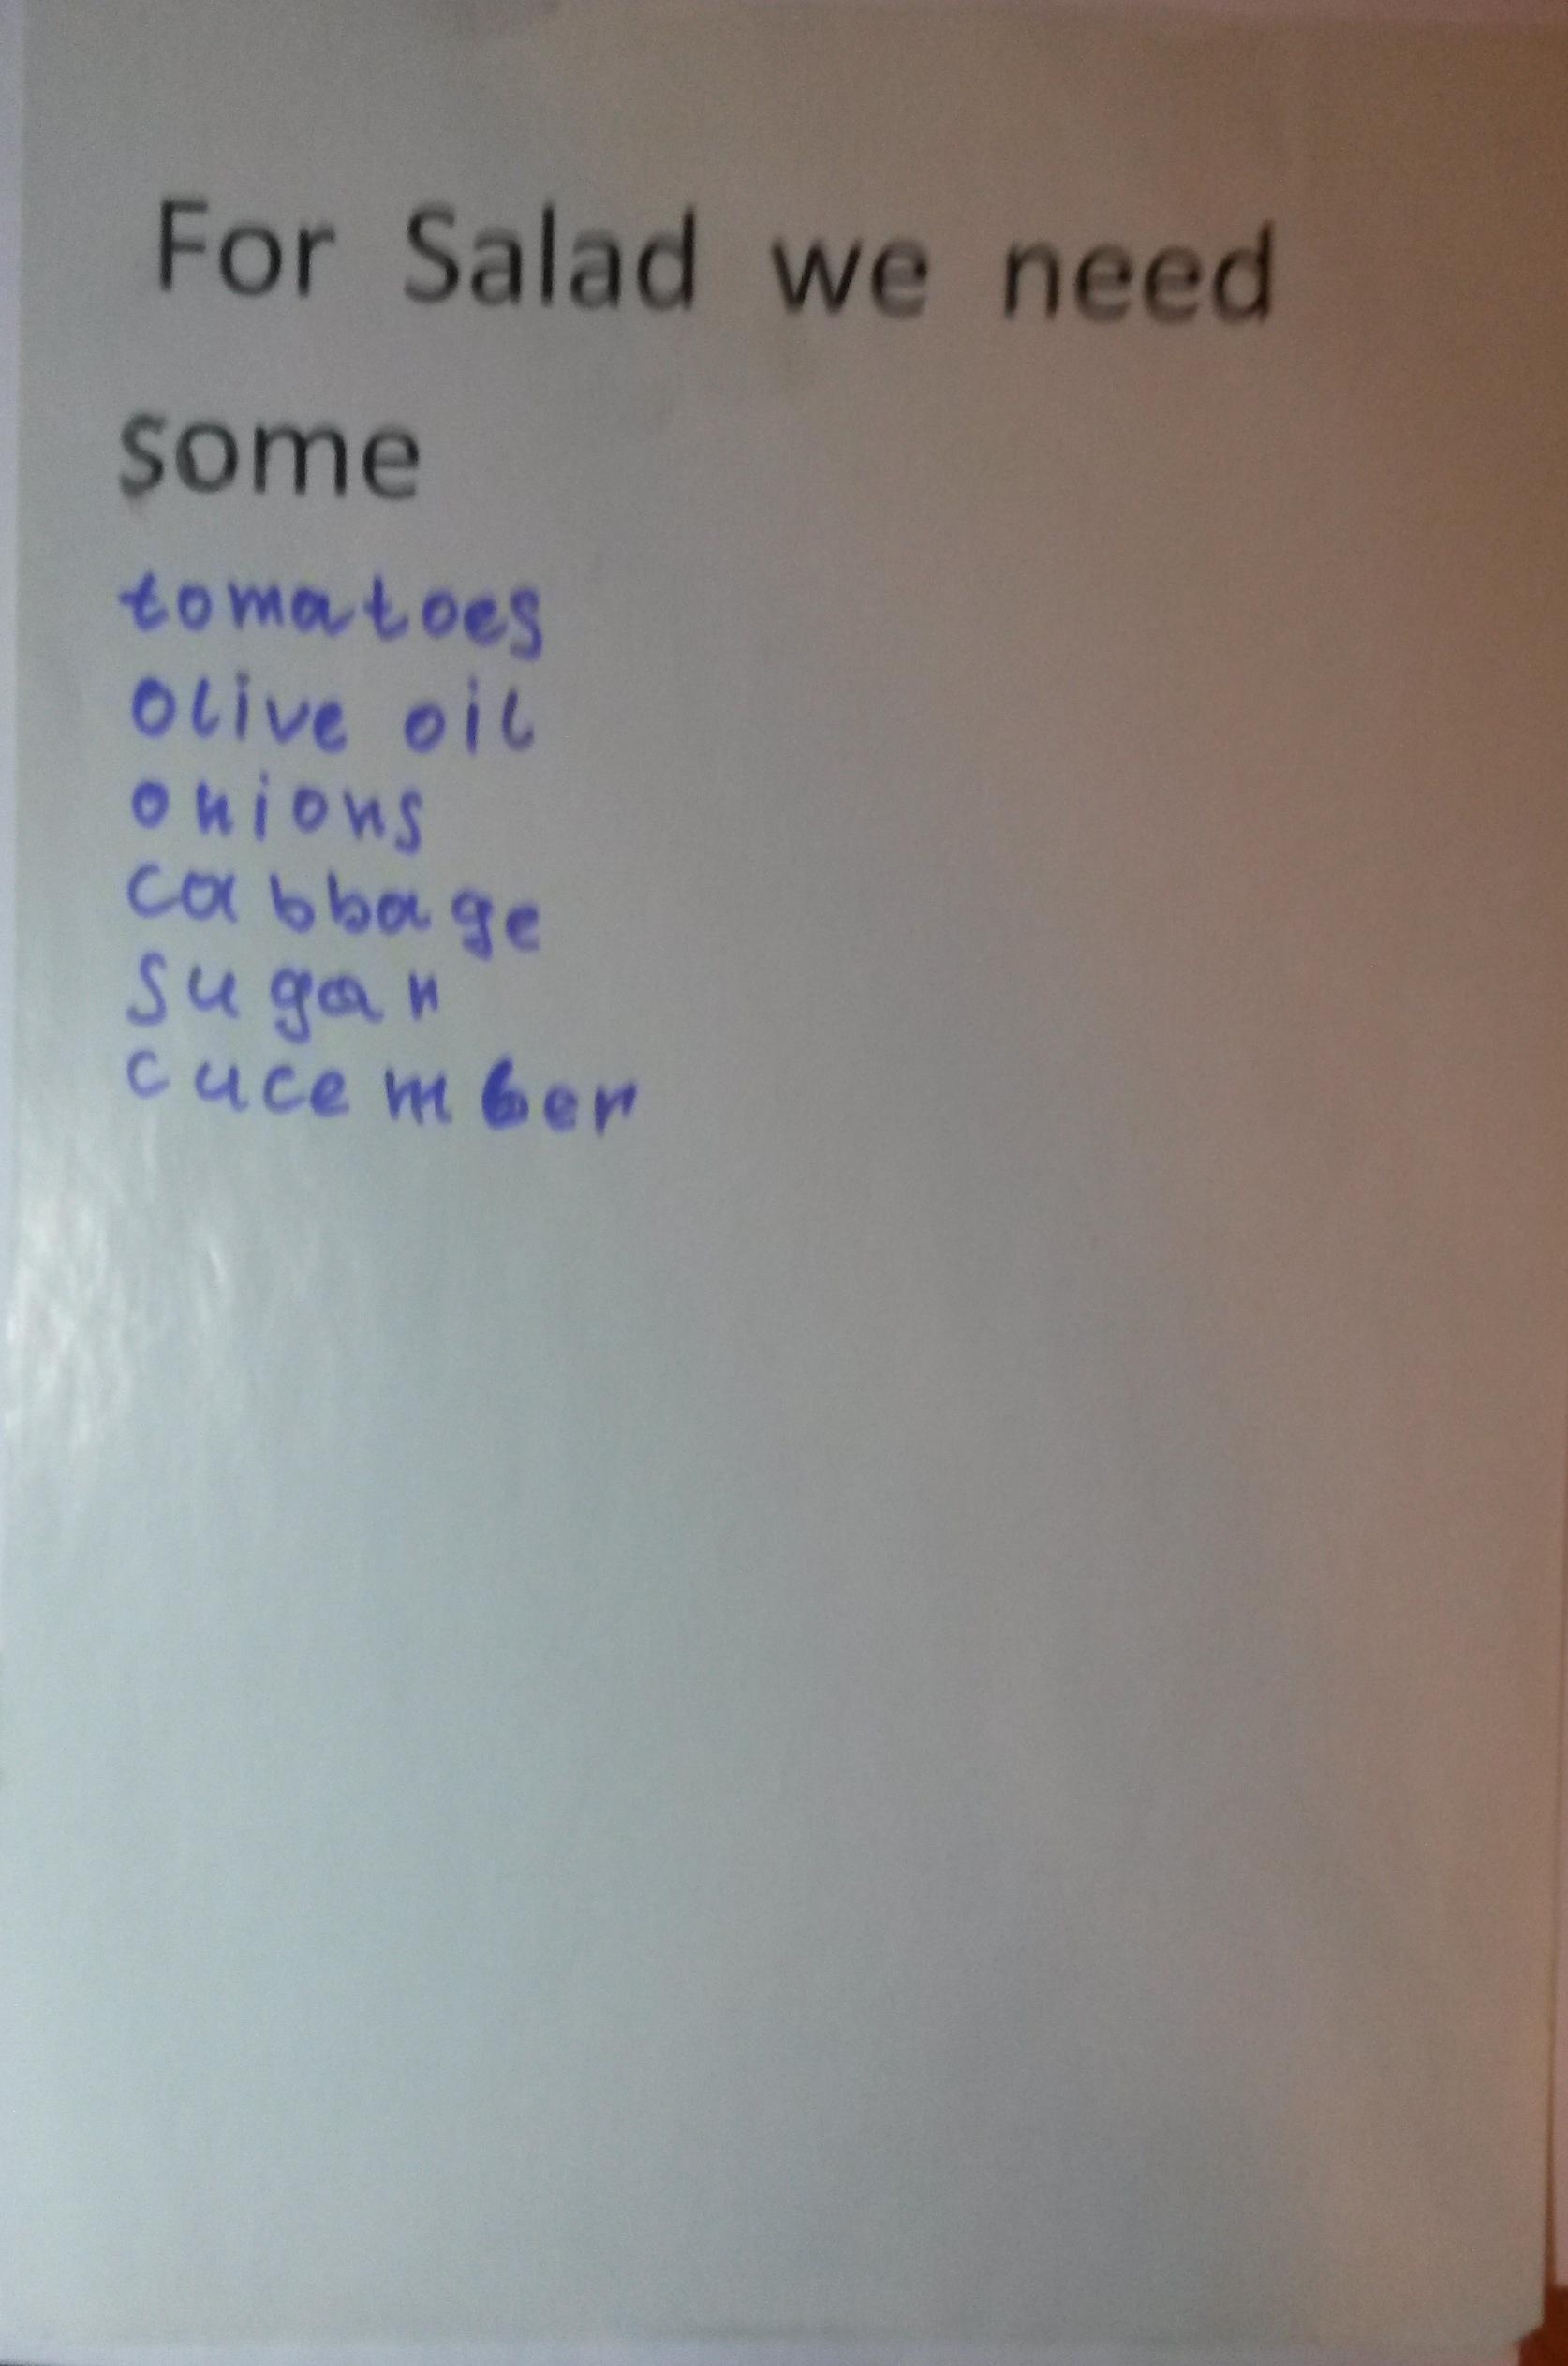 For Salad we need
some
tomatoes
olive oil
onions
cabbage
sugar
cucember